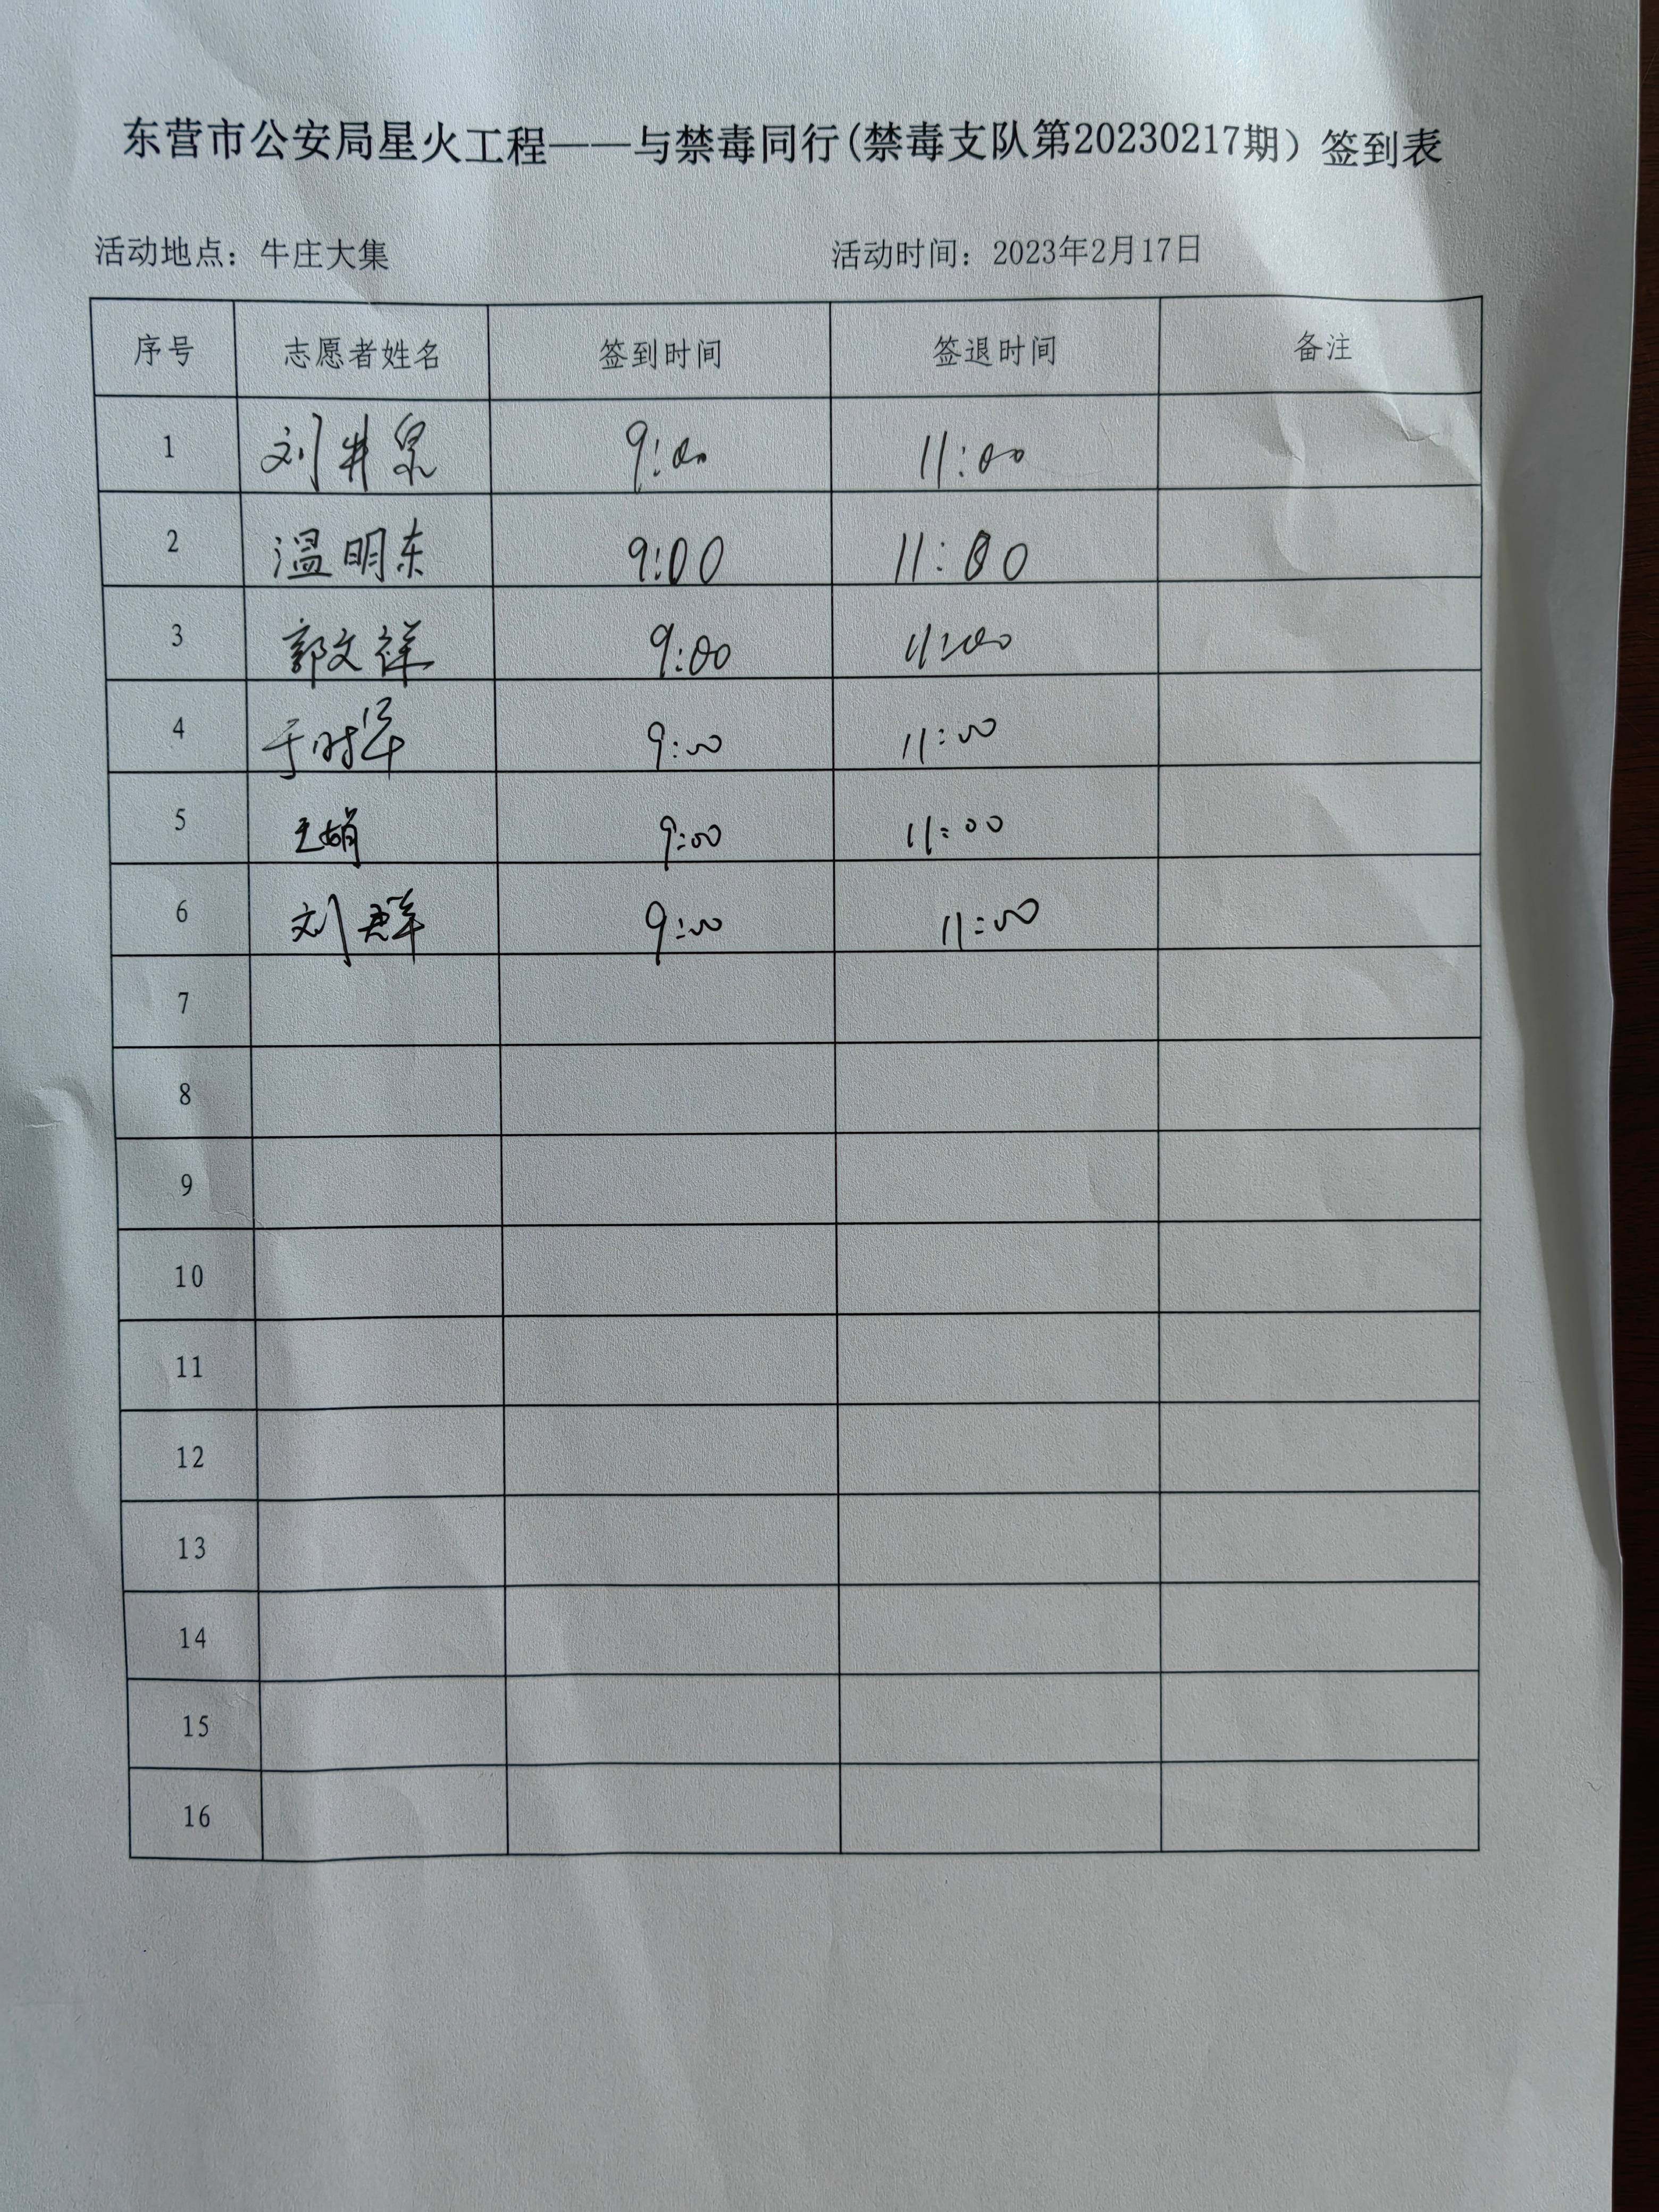 东营市公安局星火工程——与禁毒同行(禁毒支队第20230217期）签到表
活动地点：牛庄大集 活动时间：2023年2月17日
序号 志愿者姓名 签到时间 签退时间 备注
1 刘井泉 9:00 11:00
2 温明东 9:00 11:00
3 郭文祥 9:00 11:00
4 于时军 9:00 11:00
5 王娟 9:00 11:00
6 刘群 9:00 11:00
7
8
9
10
11
12
13
14
15
16